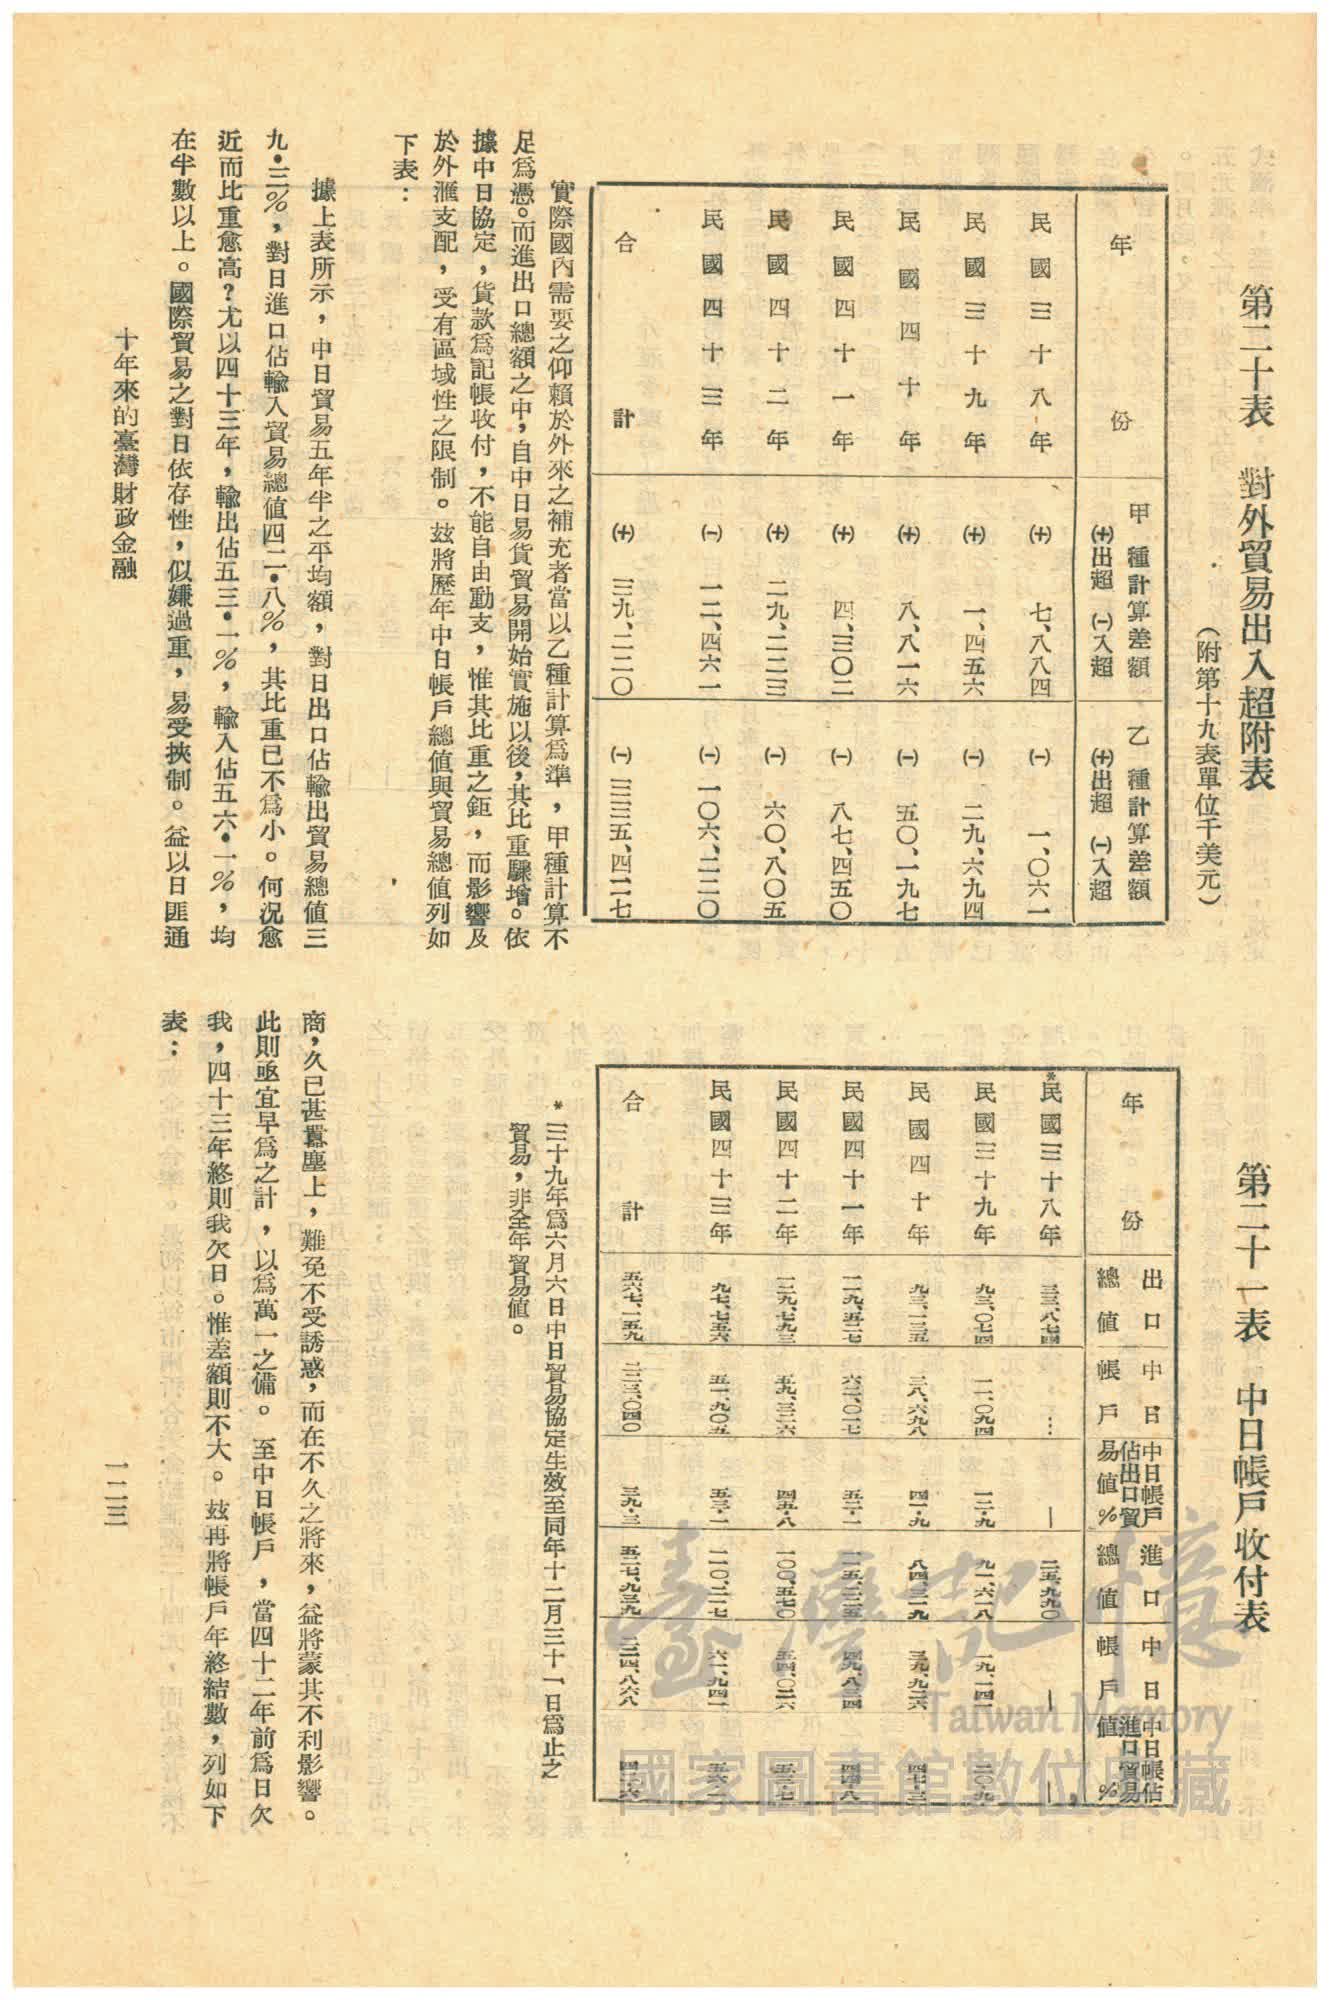 第二十表　對外貿易出入超附表
（附第十九表單位千美元）
年份　甲種計算差額 (+)出超 (-)入超　乙種計算差額 (+)出超 (-)入超
民國三十八年　(+)　七、八八四　(-)　一、〇六一
民國三十九年　(+)　一、四五六　(-)　二九、六九四
民國四十年　(+)　八、八一六　(-)　五〇、一九七
民國四十一年　(+)　四、三〇二　(-)　八七、四五〇
民國四十二年　(+)　二九、二二三　(-)　六〇、八〇五
民國四十三年　(-)　一二、四六一　(-)　一〇六、二二〇
合計　(+)　三九、二二〇　(-)　三三五、四二七
實際國內需要之仰賴於外來之補充者當以乙種計算爲準，甲種計算不
足爲憑。而進出口總額之中，自中日易貨貿易開始實施以後，其比重驟增。依
據中日協定，貨款爲記帳收付，不能自由動支，惟其比重之鉅，而影響及
於外滙支配，受有區域性之限制。玆將歷年中日帳戶總值與貿易總值列如
下表：
第二十一表　中日帳戶收付表
年份　出口總值　中日帳戶　中日帳戶佔出口貿易值%　進口總值　中日帳戶　中日帳佔進口貿易值%
*民國三十八年　三三、八七四　…　—　二五、九九〇　—　—
民國三十九年　九三、〇七四　一一、〇九四　一二・九　九一、六一八　一九、一四一　二〇・九
民國四十年　九三、一三五　三八、六九八　四一・九　八四、三一九　三九、九二六　四七・三
民國四十一年　一一九、五二七　六二、〇一七　五二・一　一一五、二二五　四九、八三四　四四・八
民國四十二年　一二九、七九三　五九、三二六　四五・八　一〇〇、五七〇　五四、〇二六　五三・七
民國四十三年　九七、七五六　五一、九〇五　五三・一　一一〇、二一七　六一、九四一　五六・一
合計　五六七、一五九　二二三、〇四〇　三九・三　五二七、九三九　二二四、八六八　四二・六
*三十九年爲六月六日中日貿易協定生效至同年十二月三十一日爲止之
貿易，非全年貿易値。
據上表所示，中日貿易五年半之平均額，對日出口佔輸出貿易總值三
九・三%，對日進口佔輸入貿易總值四二・八%，其比重已不爲小。何況愈
近而比重愈高？尤以四十三年，輸出佔五三・一%，輸入佔五六・一%，均
在半數以上。國際貿易之對日依存性，似嫌過重，易受挾制。益以日匪通
商，久已甚囂塵上，難免不受誘惑，而在不久之將來，益將蒙其不利影響。
此則亟宜早爲之計，以爲萬一之備。至中日帳戶，當四十二年前爲日欠
我，四十三年終則我欠日。惟差額則不大。玆再將帳戶年終結數，列如下
表：
十年來的臺灣財政金融
一二三
臺灣記憶
Taiwan Memory
國家圖書館數位典藏